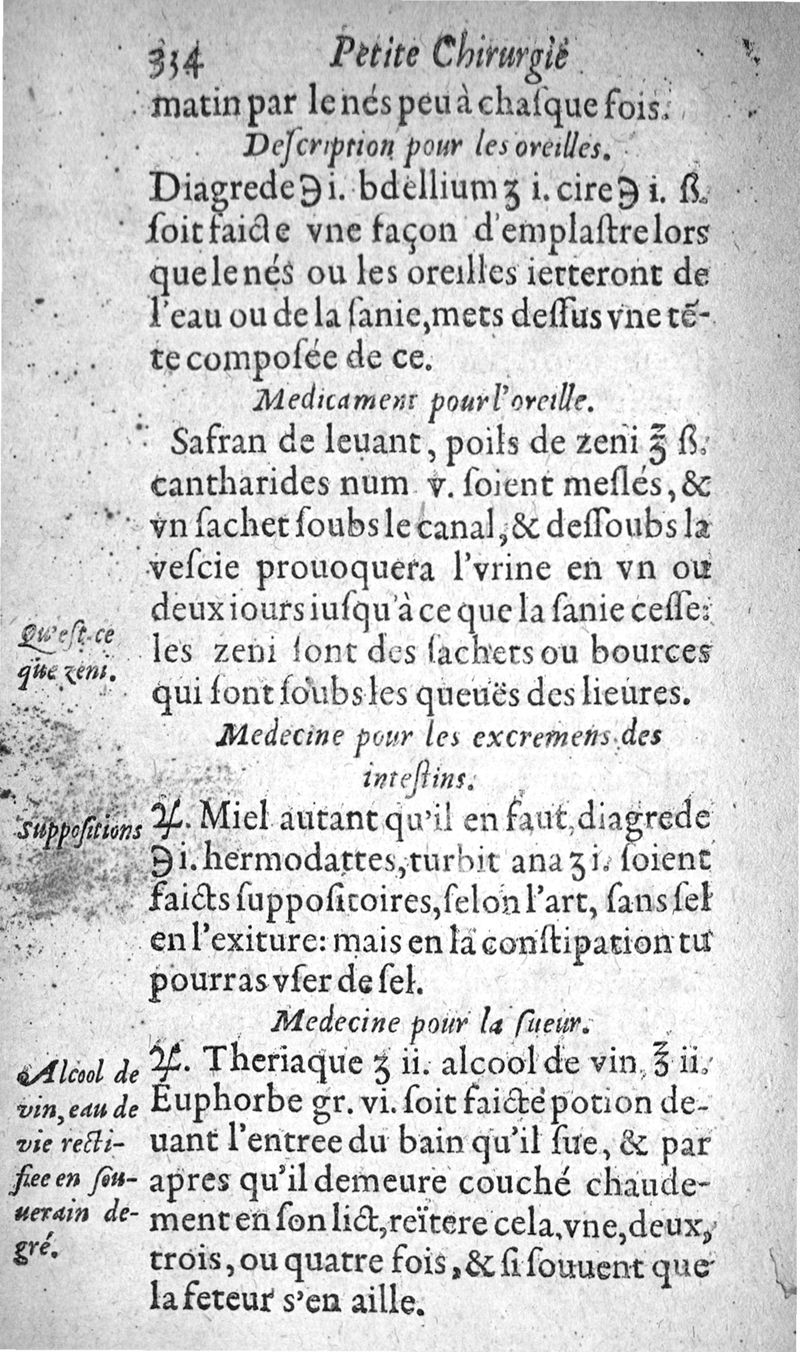 334
Petite Chirurgie
matin par le nés peu à chaſque fois.
Deſcription pour les oreilles.
Diagrede ℈ i. bdellium ʒ i. cire ℈ i. ß.
ſoit faicte vne façon d'emplaſtre lors
que le nés ou les oreilles ietteront de
l'eau ou de la ſanie, mets deſſus vne tẽ-
te compoſée de ce.
Medicament pour l'oreille.
Safran de leuant, poils de zeni ℥ ß.
cantharides num v. ſoient meſlés, &
vn ſachet ſoubs le canal, & deſſoubs la
veſcie prouoquera l'vrine en vn ou
deux iours iuſqu'à ce que la ſanie ceſſe:
les zeni ſont des ſachets ou bources
qui ſont ſoubs les queuës des lieures.
Qu'eſt-ce
que zeni.
Medecine pour les excremens des
inteſtins.
♃. Miel autant qu'il en faut, diagrede
℈ i. hermodattes, turbit ana ʒ i. ſoient
faicts ſuppoſitoires, ſelon l'art, ſans ſel
en l'exiture: mais en la conſtipation tu
pourras vſer de ſel.
Suppoſitions
Medecine pour la ſueur.
♃. Theriaque ʒ ii. alcool de vin ℥ ii.
Euphorbe gr. vi. ſoit faicte potion de-
uant l'entree du bain qu'il ſue, & par
apres qu'il demeure couché chaude-
ment en ſon lict, reïtere cela, vne, deux,
trois, ou quatre fois, & ſi ſouuent que
la feteur s'en aille.
Alcool de
vin, eau de
vie recti-
fiee en ſou-
uerain de-
gré.